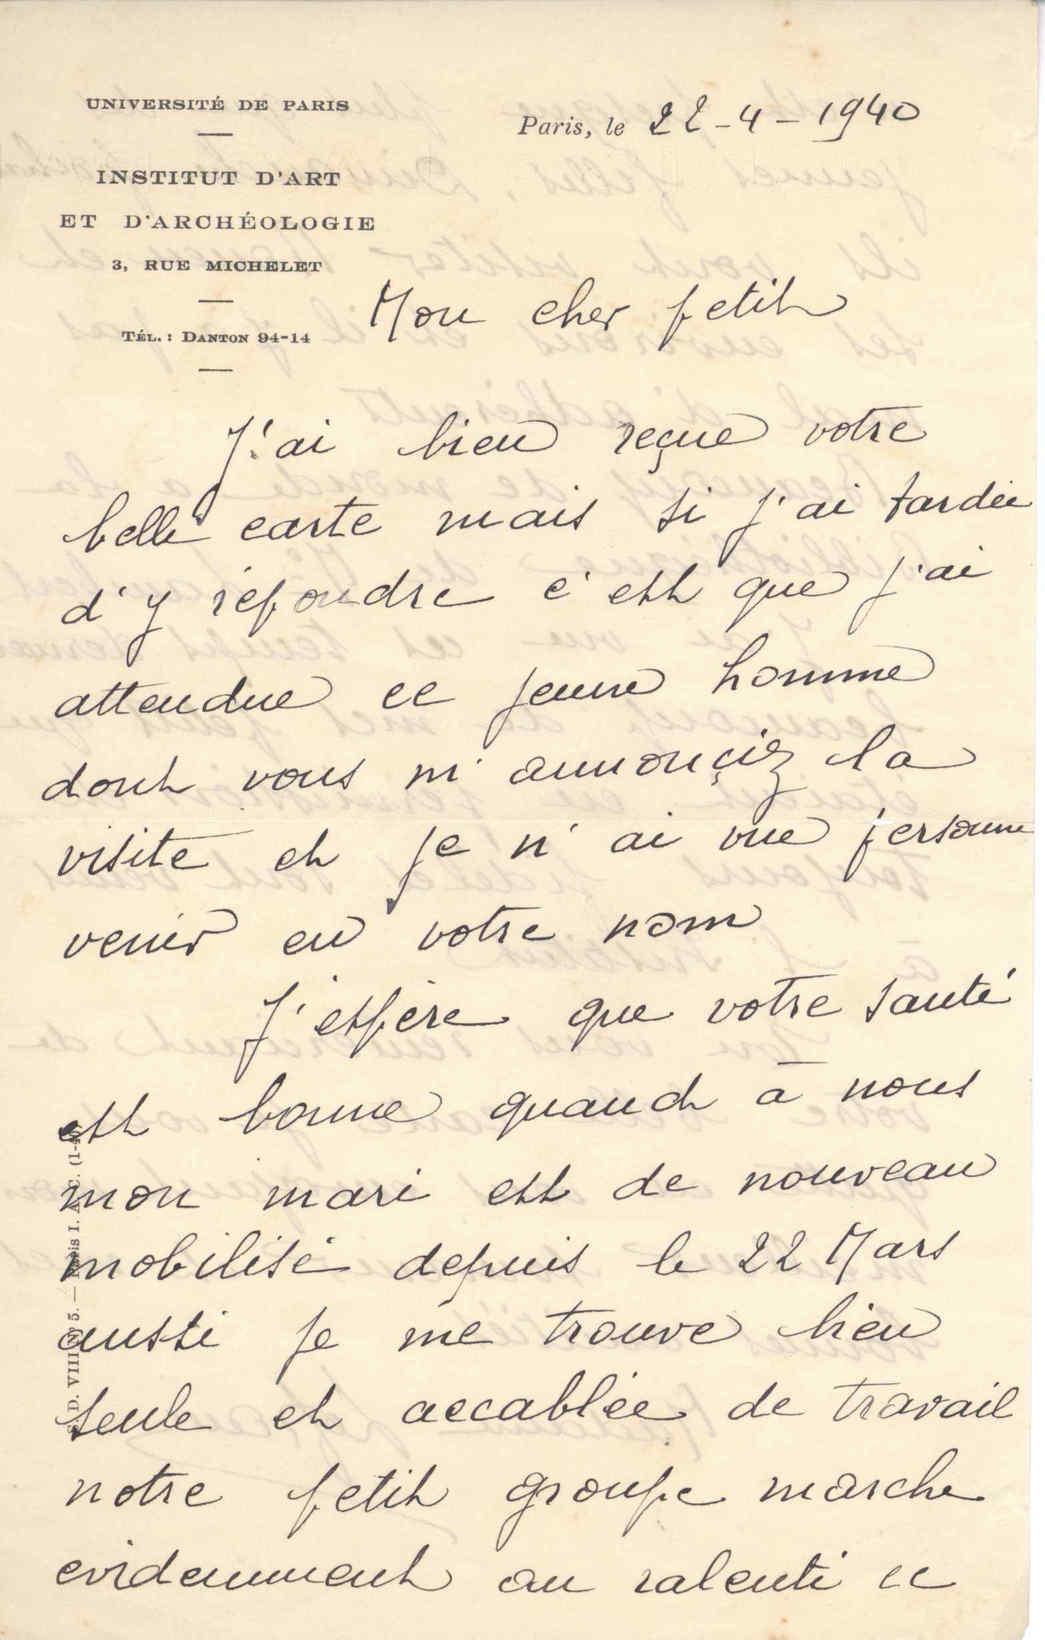 UNIVERSITÉ DE PARIS
INSTITUT D'ART
ET D'ARCHÉOLOGIE
3, RUE MICHELET
TÉL. : DANTON 94-14
Paris, le 22-4-1940
Mon cher petit
J'ai bien reçue votre
belle carte mais si j'ai tardée
d'y répondre c'est que j'ai
attendue ce jeune homme
dont vous m'annonçiez la
visite et je n'ai vue personne
venir en votre nom
J'espère que votre santé
est bonne quand à nous
mon mari est de nouveau
mobilisé depuis le 22 Mars
aussi je me trouve bien
seule et accablée de travail
notre petit groupe marche
evidemment au ralenti ce